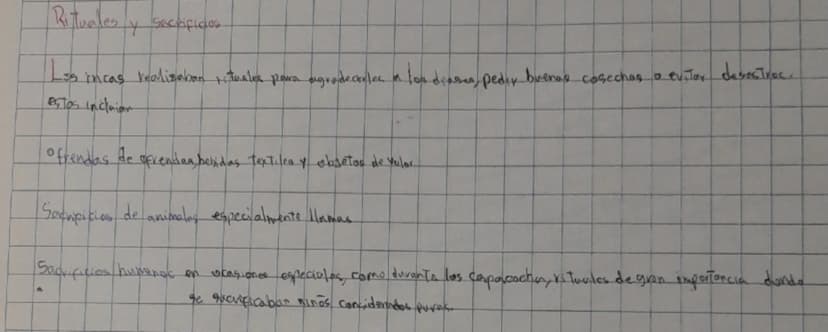 Rituales y sacrificios
Los incas realizaban rituales para agradecerles a los dioses, pedir buenas cosechas o evitar desastres.
estos incluian
Ofrendas de ofrendas, bebidas textiles y objetos de valor
Sacrificios de animales especialmente llamas
Sacrificios humanos en ocasiones especiales, como durante las capacocha, rituales de gran importancia donde
se sacrificaban niños considerados puros.